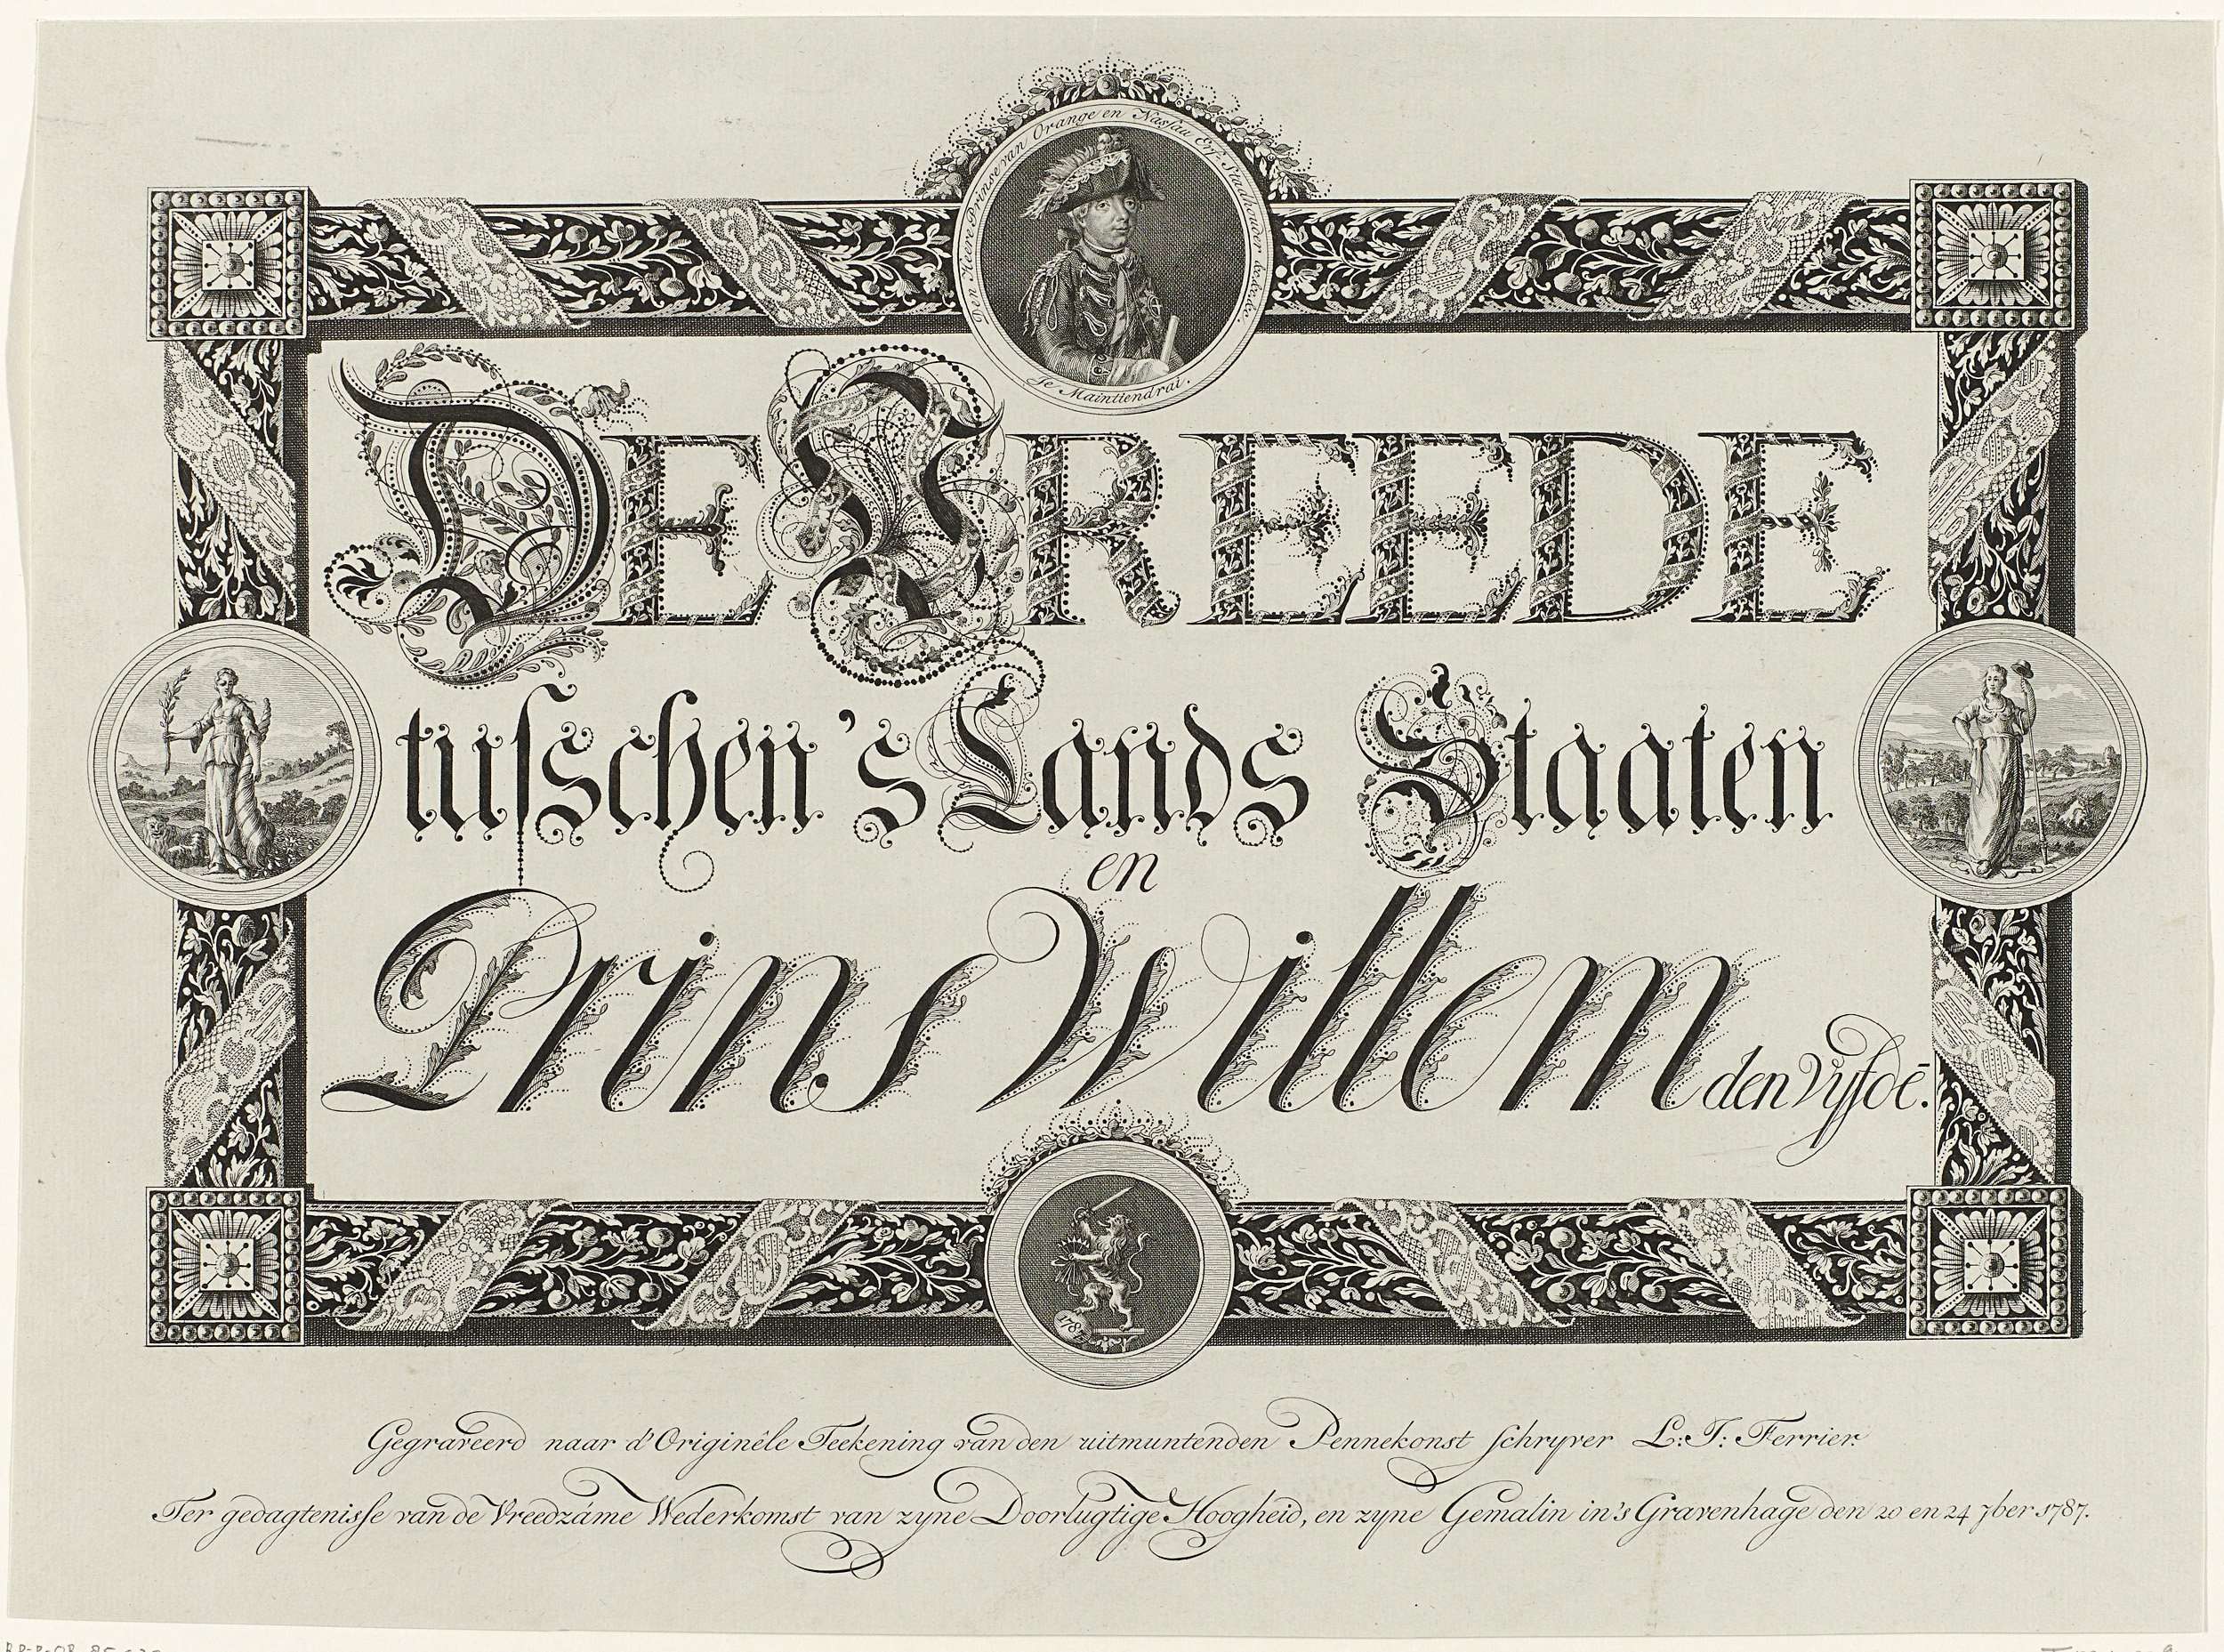 Orange en Nassau Erf Stadhouder
Je Mainttendrai.
DE VREEDE
tusschen 's Lands Staaten
en
Prins Willem den Vyfdē.
1787
Gegraveerd naar d'Originêle Teekening van den uitmuntenden Pennekonst schryver L: J: Ferrier.
Ter gedagtenisse van de Vreedzáme Wederkomst van zyne Doorlugtige Hoogheid, en zyne Gemalin in 's Gravenhage den 20 en 24 7ber 1787.